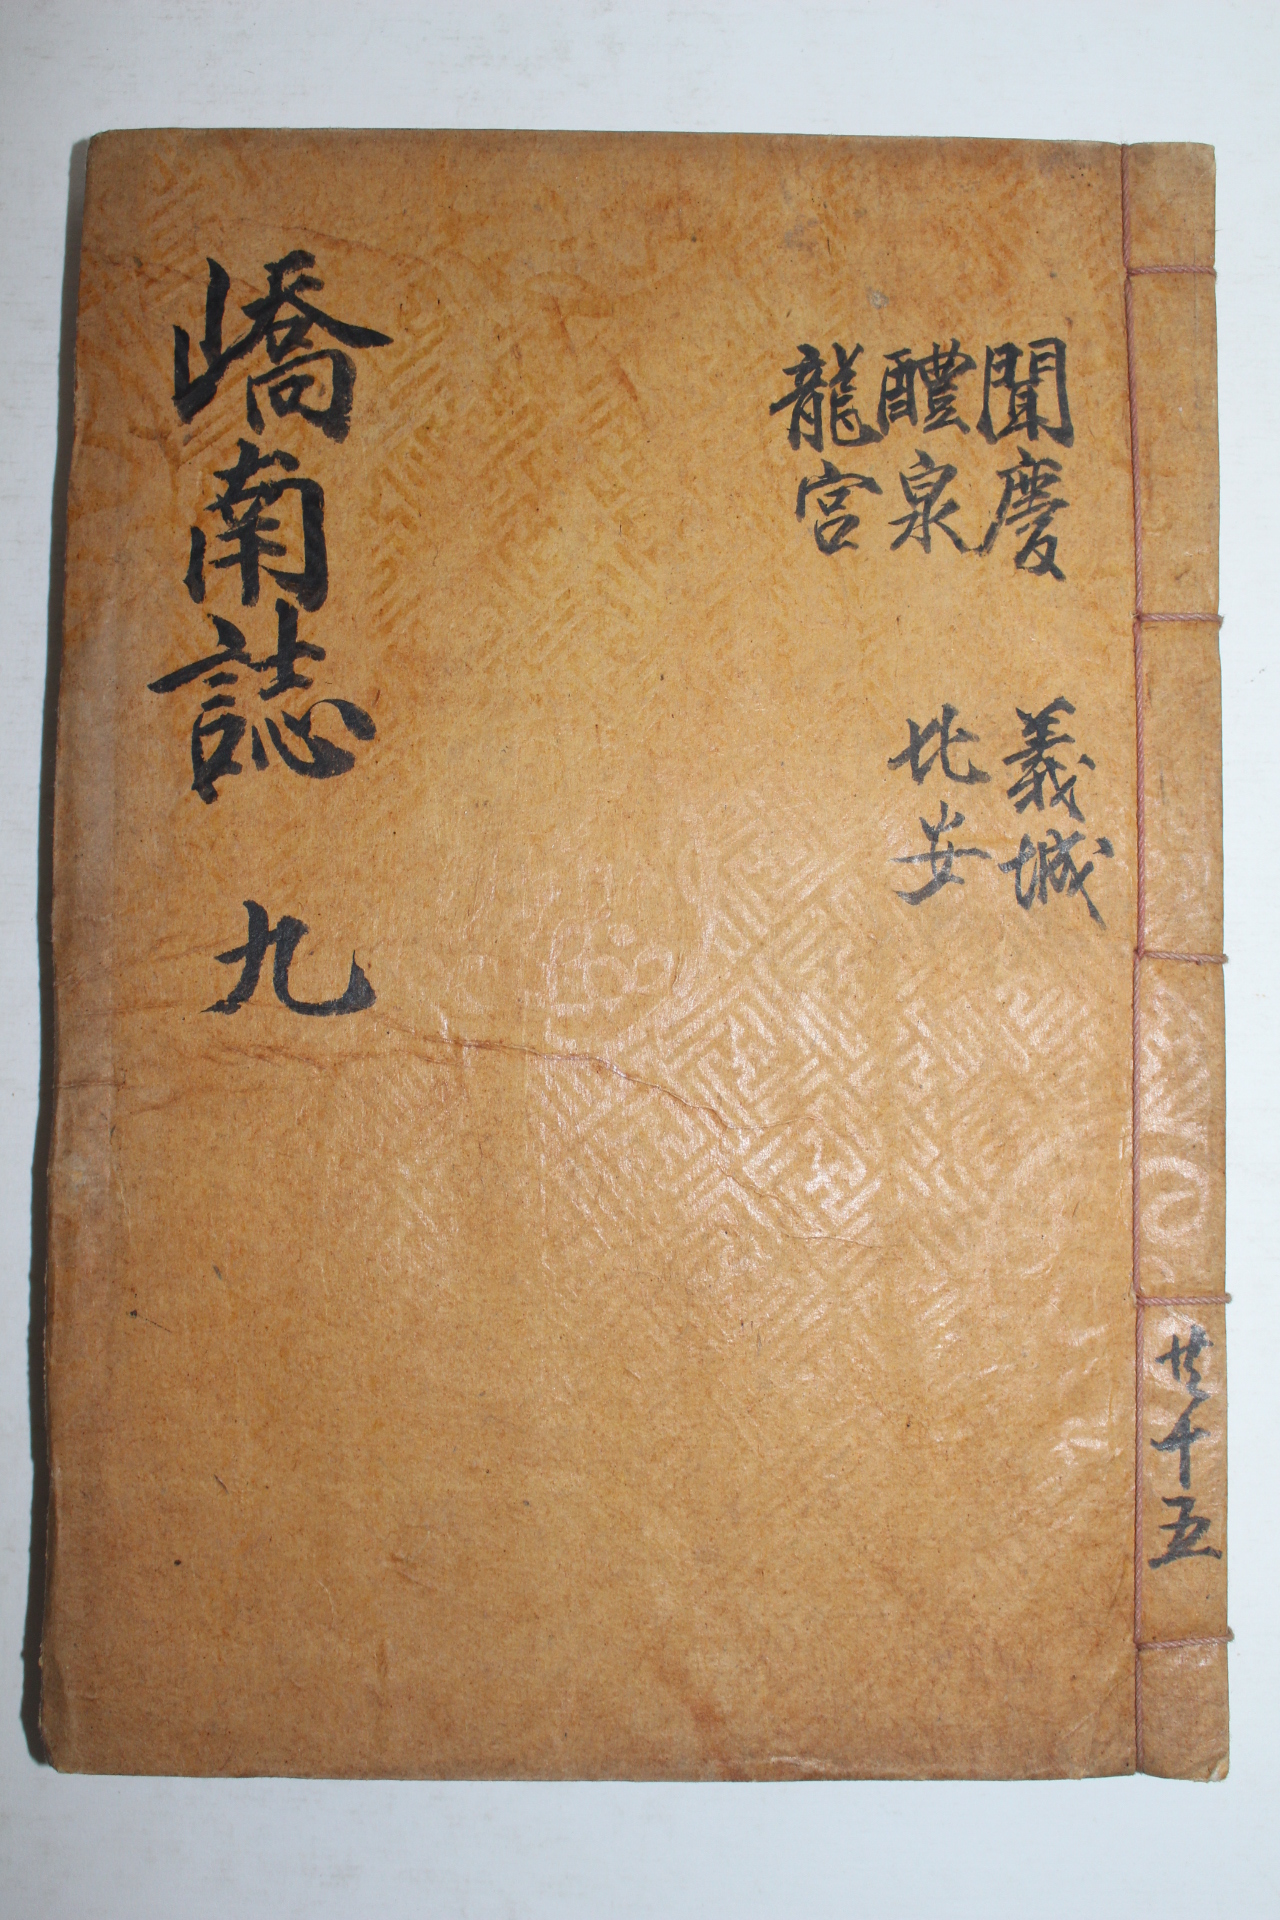 聞慶
醴泉
龍宮
義城
比安
嶠南誌 九
共十五